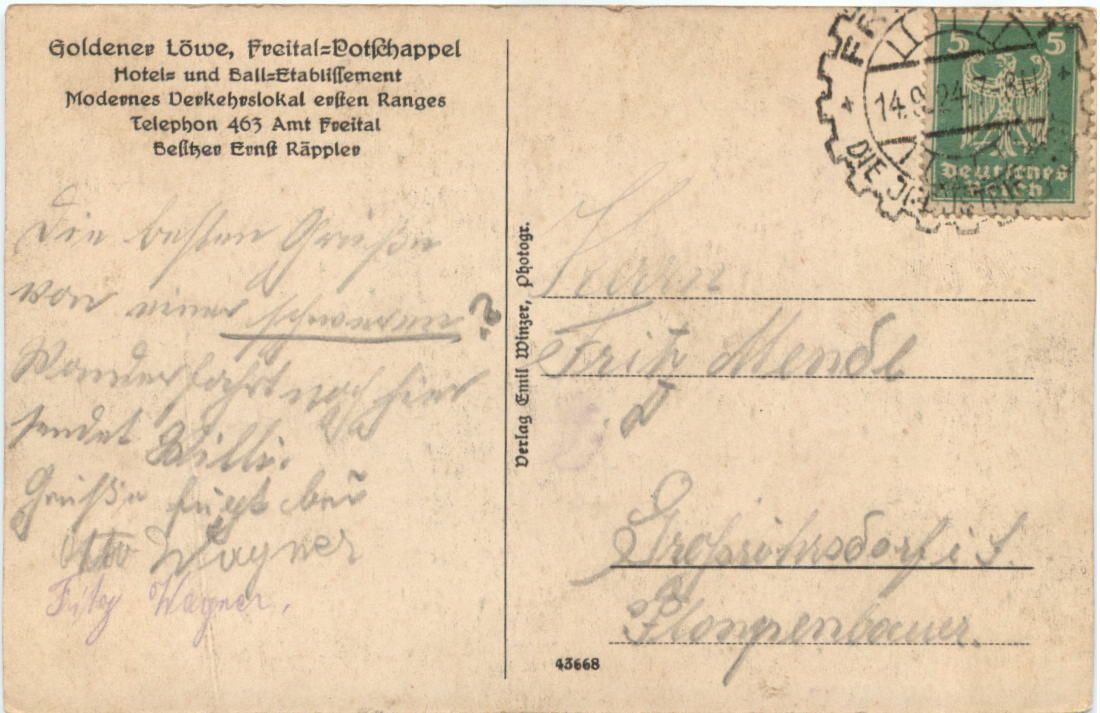 Goldener Löwe, Freital=Potschappel
Hotel= und Ball=Etablissement
Modernes Verkehrslokal ersten Ranges
Telephon 463 Amt Freital
Besitzer Ernst Räppler
Die besten Grüße
von einer schweren ?
Wanderfahrt nach hier
sendet Willi.
Grüße fügt bei
Otto Wagner
Fritz Wagner.
Verlag Emil Winzer, Photogr.
5 5
Deutsches
Reich
14.9.24
DIE
Herrn
Fritz Mendl
Großröhrsdorf i S.
43668